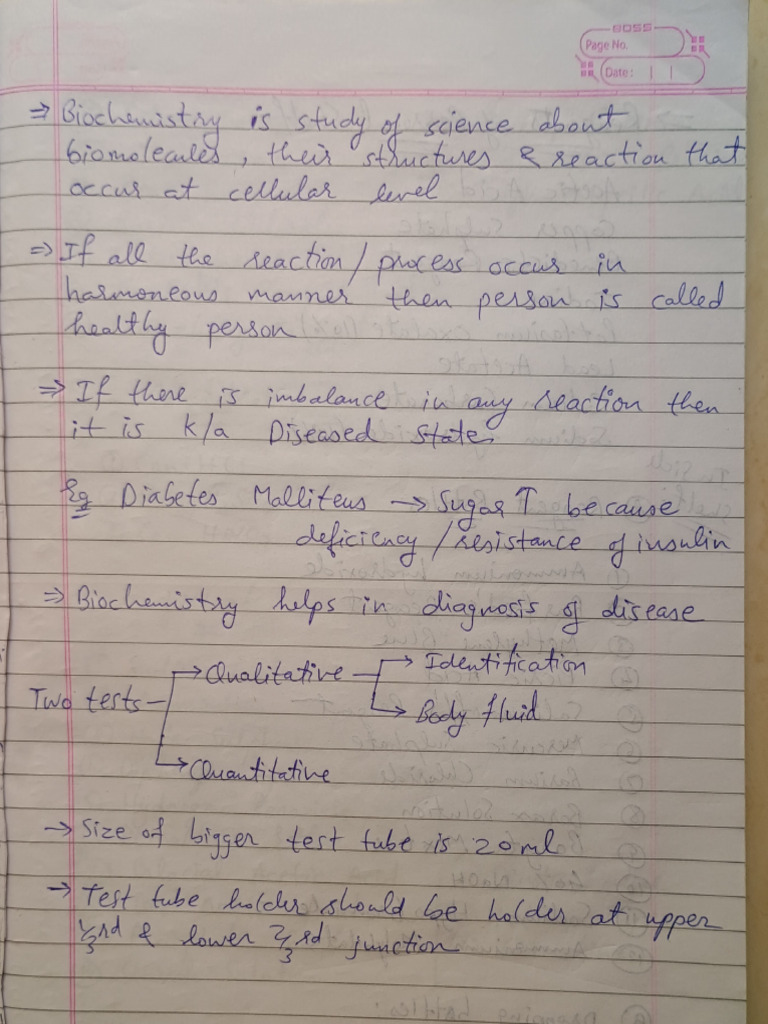 BOSS
Page No.
Date:
⇒ Biochemistry is study of science about
biomolecules, their structures & reaction that
occur at cellular level
⇒ If all the reaction/process occur in
harmoneous manner then person is called
healthy person
⇒ If there is imbalance in any reaction then
it is k/a Diseased State
Eg Diabetes Malliteus → Sugar ↑ because
deficiency/resistance of insulin
⇒ Biochemistry helps in diagnosis of disease
Two tests
→ Qualitative
→ Identification
→ Body fluid
→ Quantitative
→ Size of bigger test tube is 20 ml
→ Test tube holder should be holder at upper
1/3rd & lower 2/3rd junction